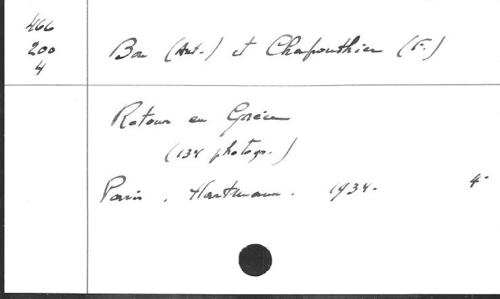 466
200
4
Bon (Ant.) et Chapouthier (F.)
Retour en Grèce
(134 photogr.)
Paris. Hartmann. 1934. 4°